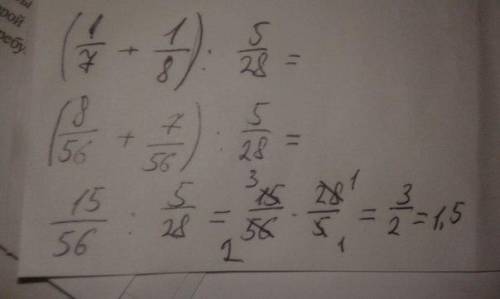 ы
рой
ребу.
(1/7 + 1/8) : 5/28 =
(8/56 + 7/56) : 5/28 =
15/56 : 5/28 = 3 15/56 2 · 28/5 1 1 = 3/2 = 1,5